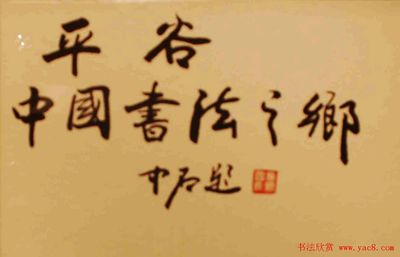 平谷
中國書法之鄉
中石題
书法欣赏 www.yac8.com